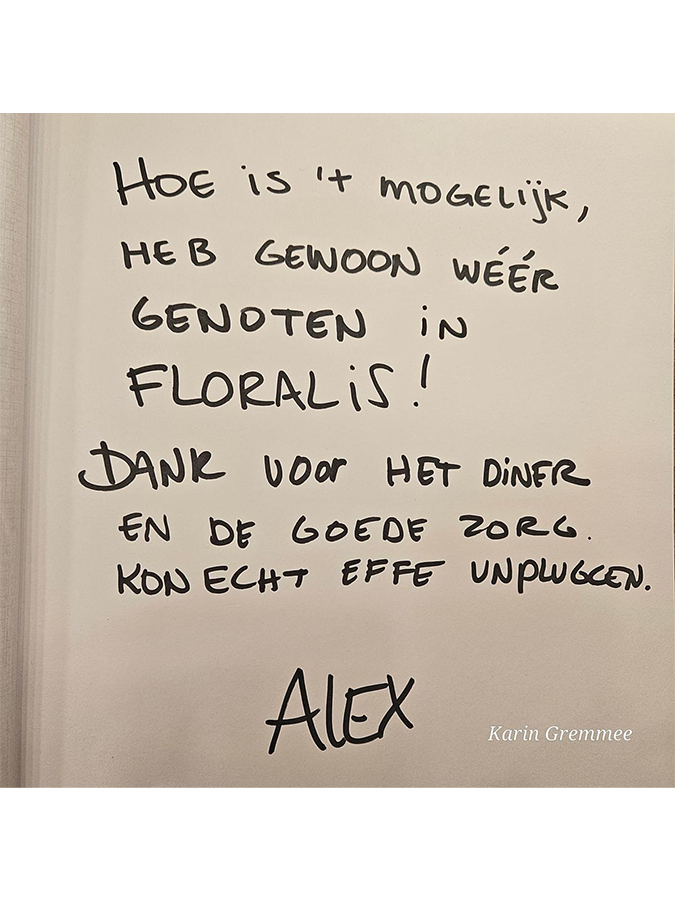 HOE iS 't MOGELIJK,
HEB GEWOON WÉÉR
GENOTEN iN
FLORALiS!
DANK VOOr HET DiNER
EN DE GOEDE ZORG.
KON ECHT EFFE UNPLUGGEN.
ALEX
Karin Gremmee